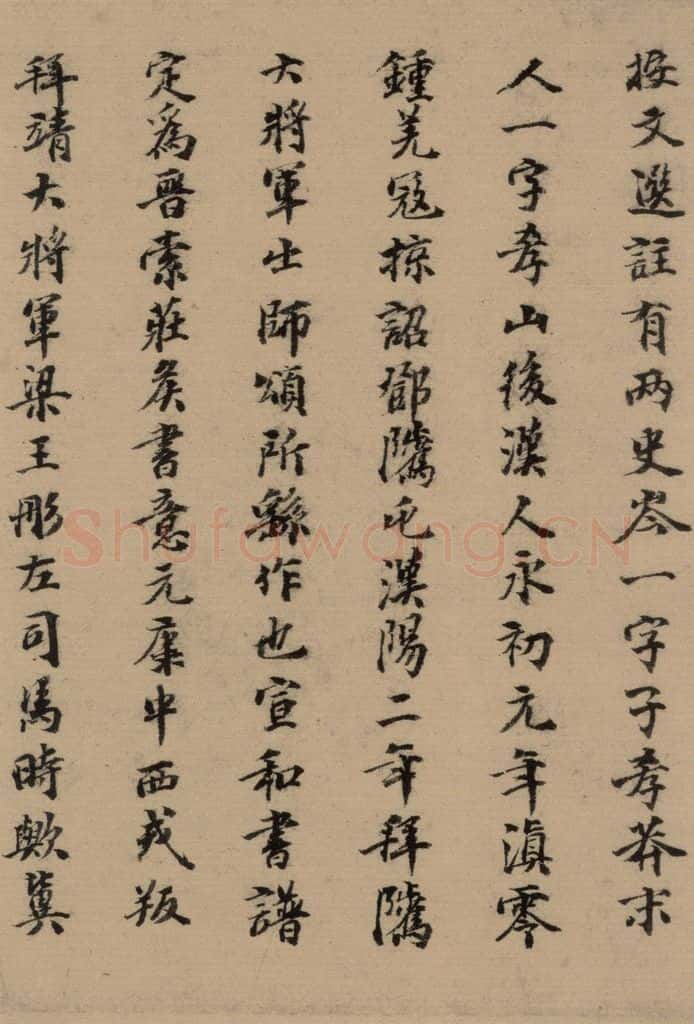 按文選註有两史岑一字子孝莽末
人一字孝山後漢人永初元年滇零
鍾羌寇掠詔鄧騭屯漢陽二年拜騭
大將軍出師頌所繇作也宣和書譜
定為晉索莊矦書意元康中西戎叛
拜靖大將軍梁王彤左司馬時歟冀
Shufawang.CN